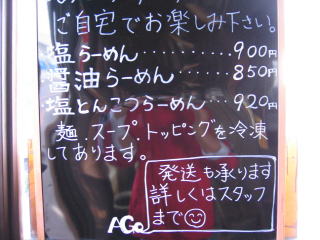 ご自宅でお楽しみ下さい。
塩らーめん・・・・・・・・・・900円
醤油らーめん・・・・・・・850円
塩とんこつらーめん・・・920円
麺、スープ、トッピングを冷凍
してあります。
発送も承ります
詳しくはスタッフ
まで☺